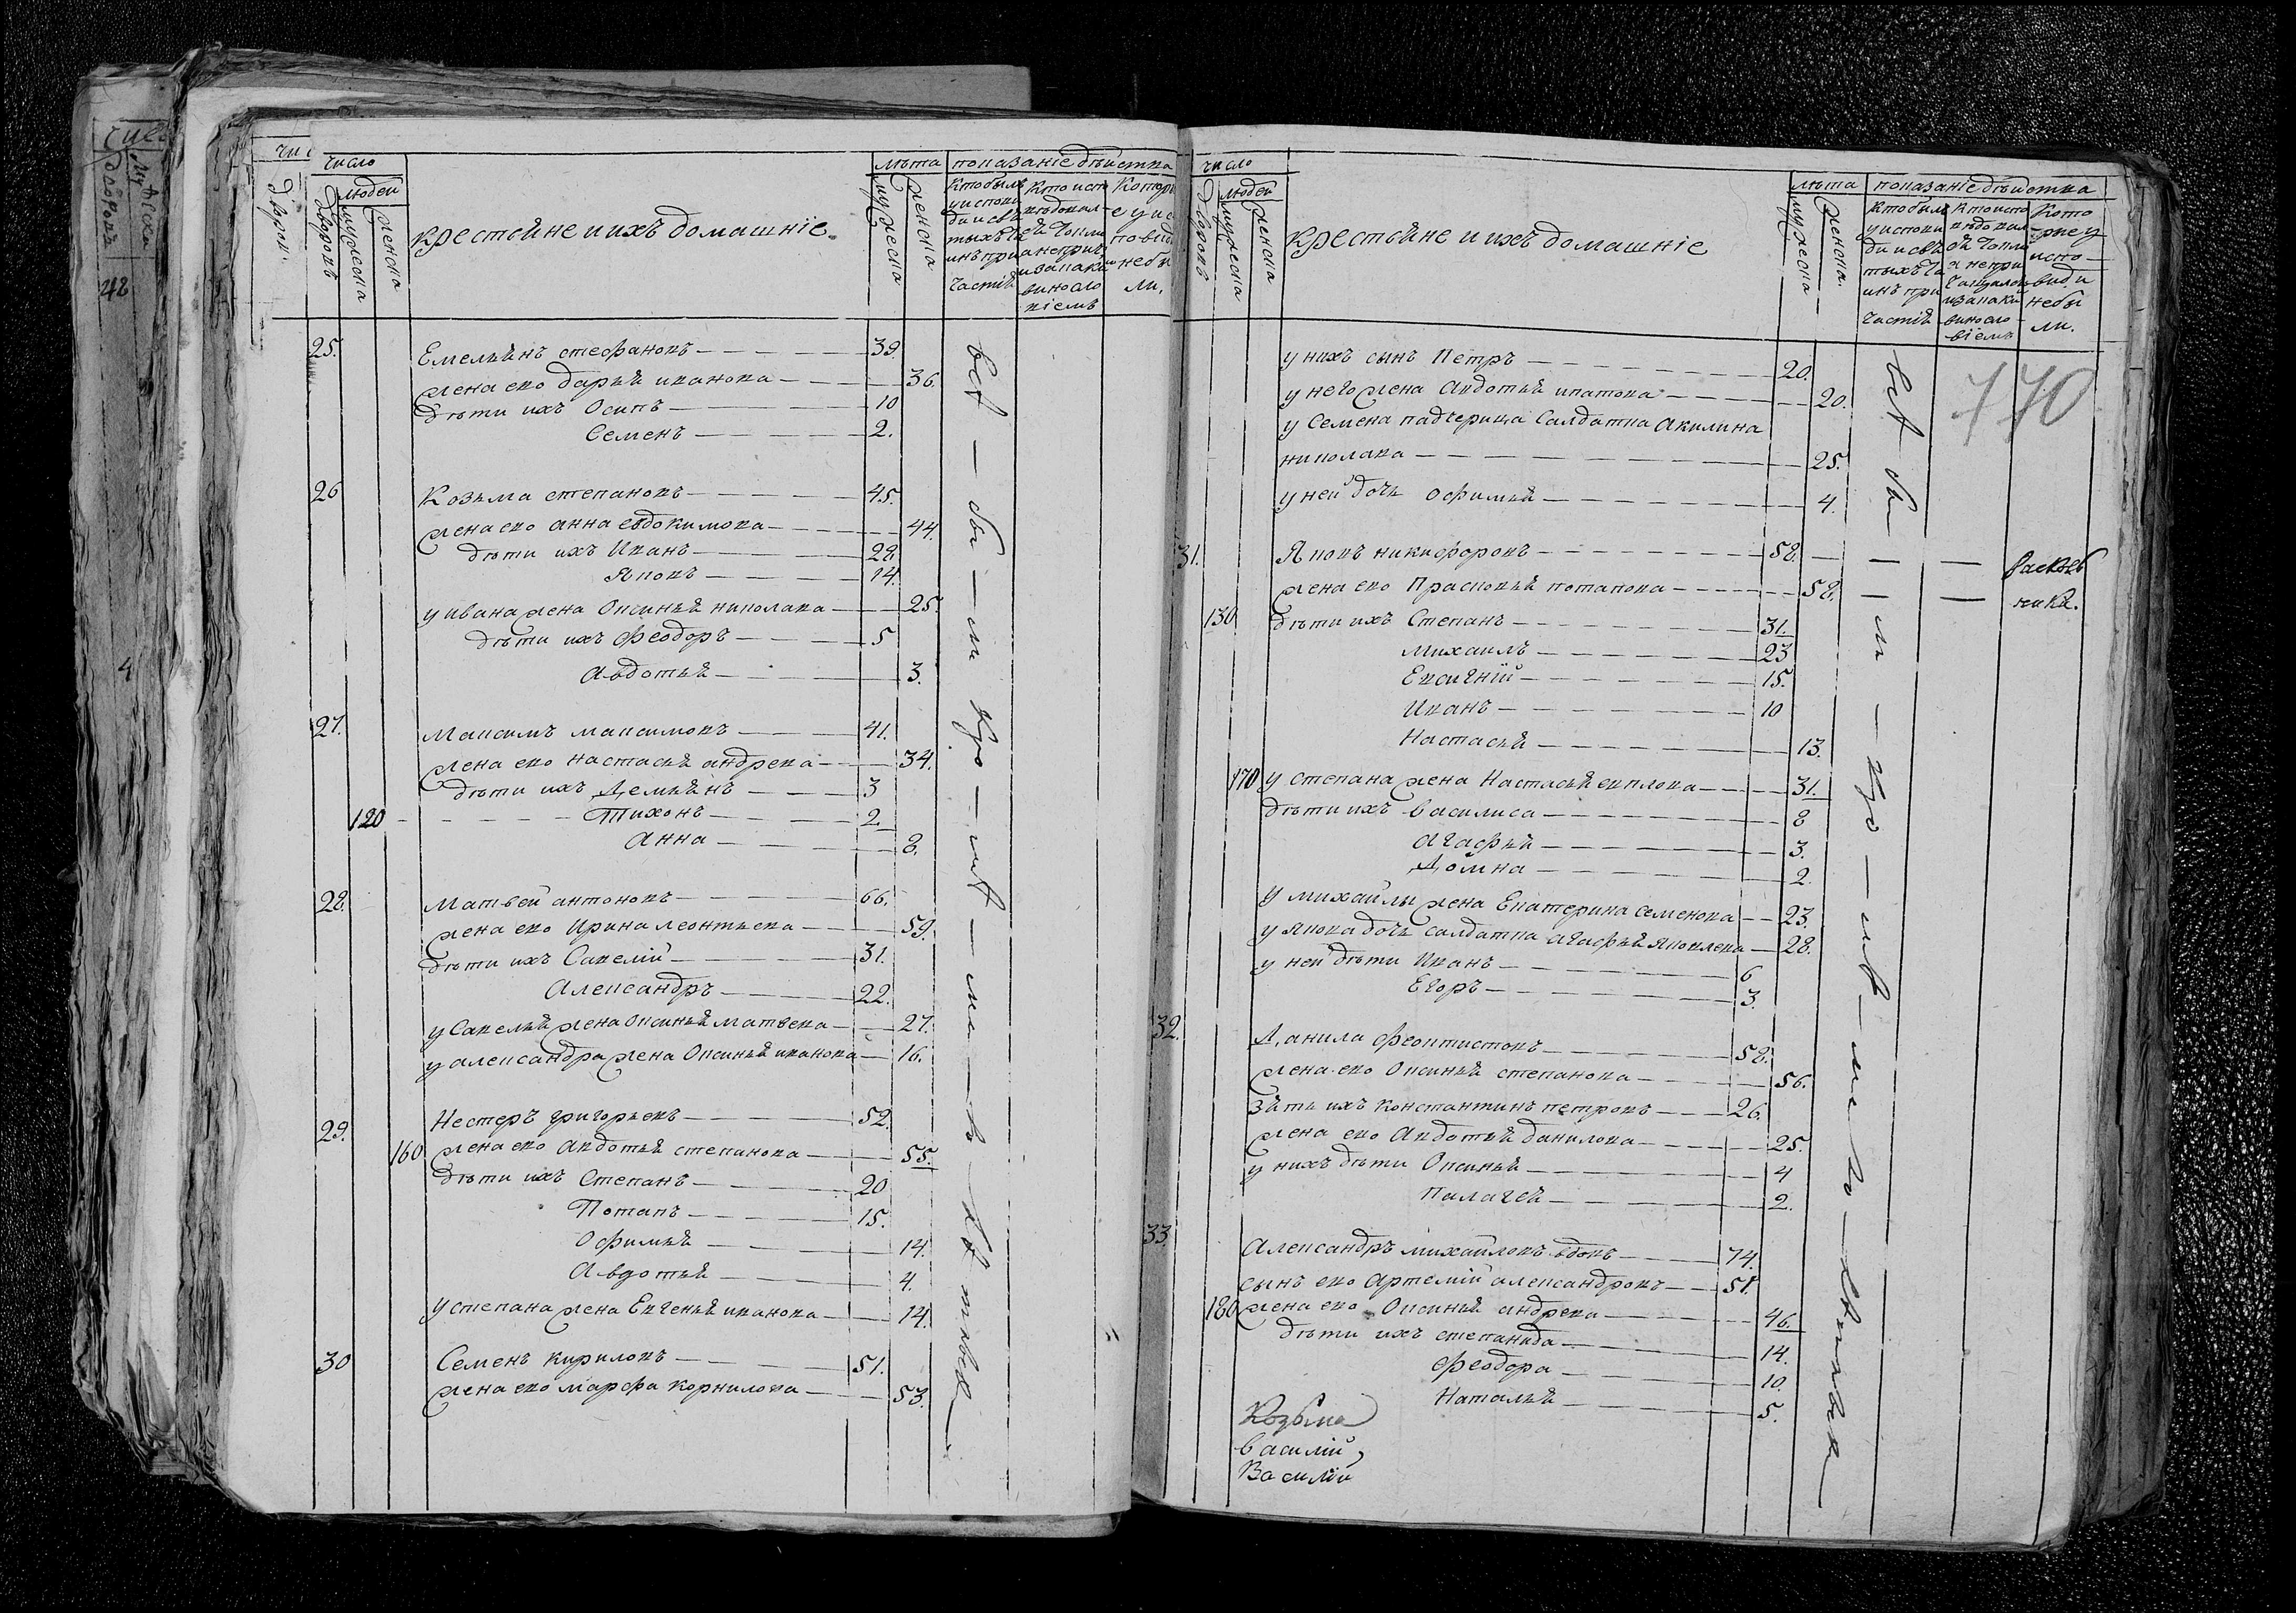 число
дворовъ
людей
мужеска
женска
крестьяне и ихъ домашніе
лѣта
мужеска
женска
показаніе дѣиства
кто былъ
у испове
ди и свѣ
тыхъ та
инъ при
частія
25. Емельянъ стефановъ — 39.
жена ево дарья иванова — 36.
дѣти ихъ Осипъ — 10
Семенъ — 2.
26 Козьма степановъ — 45.
жена ево анна евдокимова — 44.
дѣти ихъ Иванъ — 28.
Яковъ — 14.
у ивана жена Оксинья николаева — 25.
дѣти ихъ феодоръ — 5
Авдотья — 3.
27. Максимъ максимовъ — 41.
жена ево настасья андреева — 34.
дѣти ихъ Демьянъ — 3
120 Тихонъ — 2.
Анна — 8.
28. Матвей антоновъ — 66.
жена ево Ирина леонтьева — 59.
дѣти ихъ Савелій — 31.
Александръ — 22.
у Савелья жена Оксинья матвеева — 27.
у александра жена Оксинья иванова — 16.
29. Нестеръ григорьевъ — 52.
160 жена ево Авдотья степанова — 55.
дѣти ихъ Степанъ — 20
Потапъ — 15.
Офимья — 14.
Авдотья — 4.
у степана жена Евгенья иванова — 14.
30 Семенъ кириловъ — 51.
жена ево марфа корнилова — 53.
число
дворовъ
людей
мужеска
женска
крестьяне и ихъ домашніе
лѣта
мужеска
женска
показаніе дѣиства
кто былъ
у испове
ди и свѣ
тыхъ та
инъ при
частія
кото
рые у
испо
веди
небы
ли.
770
у нихъ сынъ Петръ — 20.
у него жена Авдотья ипатова — 20.
у Семена падчерица Салдатка Акилина
николаева — 25.
у неи дочь Офимья — 4.
31. Яковъ никифоровъ — 58.
жена ево Прасковья потапова — 58.
130 дѣти ихъ Степанъ — 31.
михаилъ — 23
Евсигній — 15.
Иванъ — 10
Настасья — 13.
170 у степана жена Настасья екплова — 31.
дѣти ихъ василиса — 8
Агафья — 3.
Домна — 2.
у михаилы жена Екатерина семенова — 23.
у якова дочь салдатка агафья яковлева — 28.
у неи дѣти Иванъ — 6
Егоръ — 3.
32. Данила феоктистовъ — 58.
жена ево Оксинья степанова — 56.
зять ихъ константинъ петровъ — 26.
жена ево Авдотья данилова — 25.
у нихъ дѣти Оксинья — 4
Палагея — 2.
33. Александръ михаиловъ вдовъ — 74.
сынъ ево Артемій александровъ — 51.
180 жена ево Оксинья андреева — 46.
дѣти ихъ степанида — 14.
феодора — 10.
Наталья — 5.
Козьма
василій
Василій